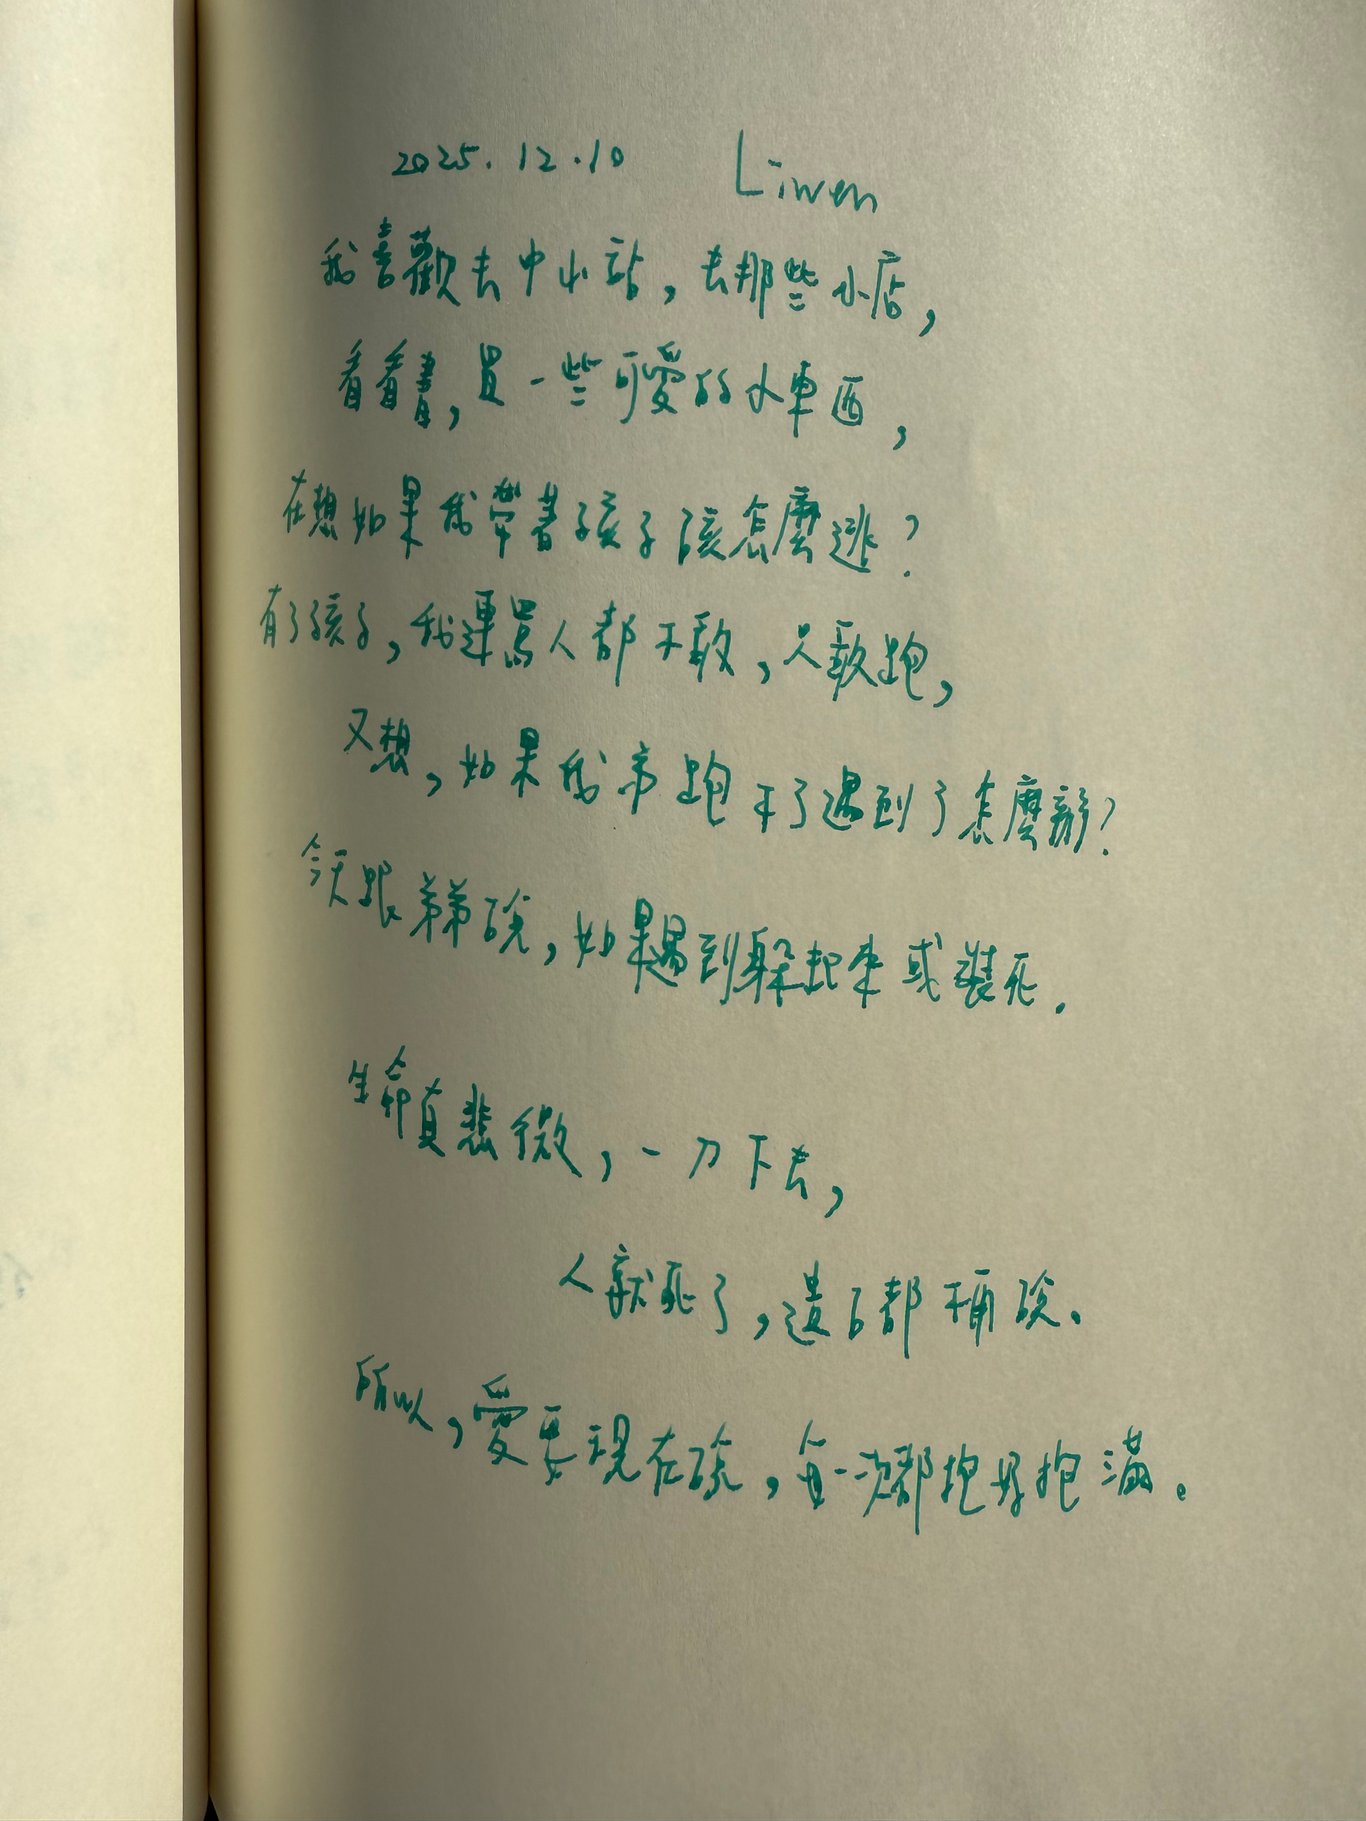 2025.12.10 Liwen
我喜歡去中山站，去那些小店，
看看書，買一些可愛的小東西，
在想如果我帶著孩子該怎麼逃？
有了孩子，我連罵人都不敢，只敢跑，
又想，如果我帝跑不了遇到了怎麼辦？
今天跟弟弟說，如果遇到躲起來或裝死.
生命真悲微，一刀下去，
人就死了，遺言都不用說。
所以，愛要現在說，每一次都抱好抱滿。